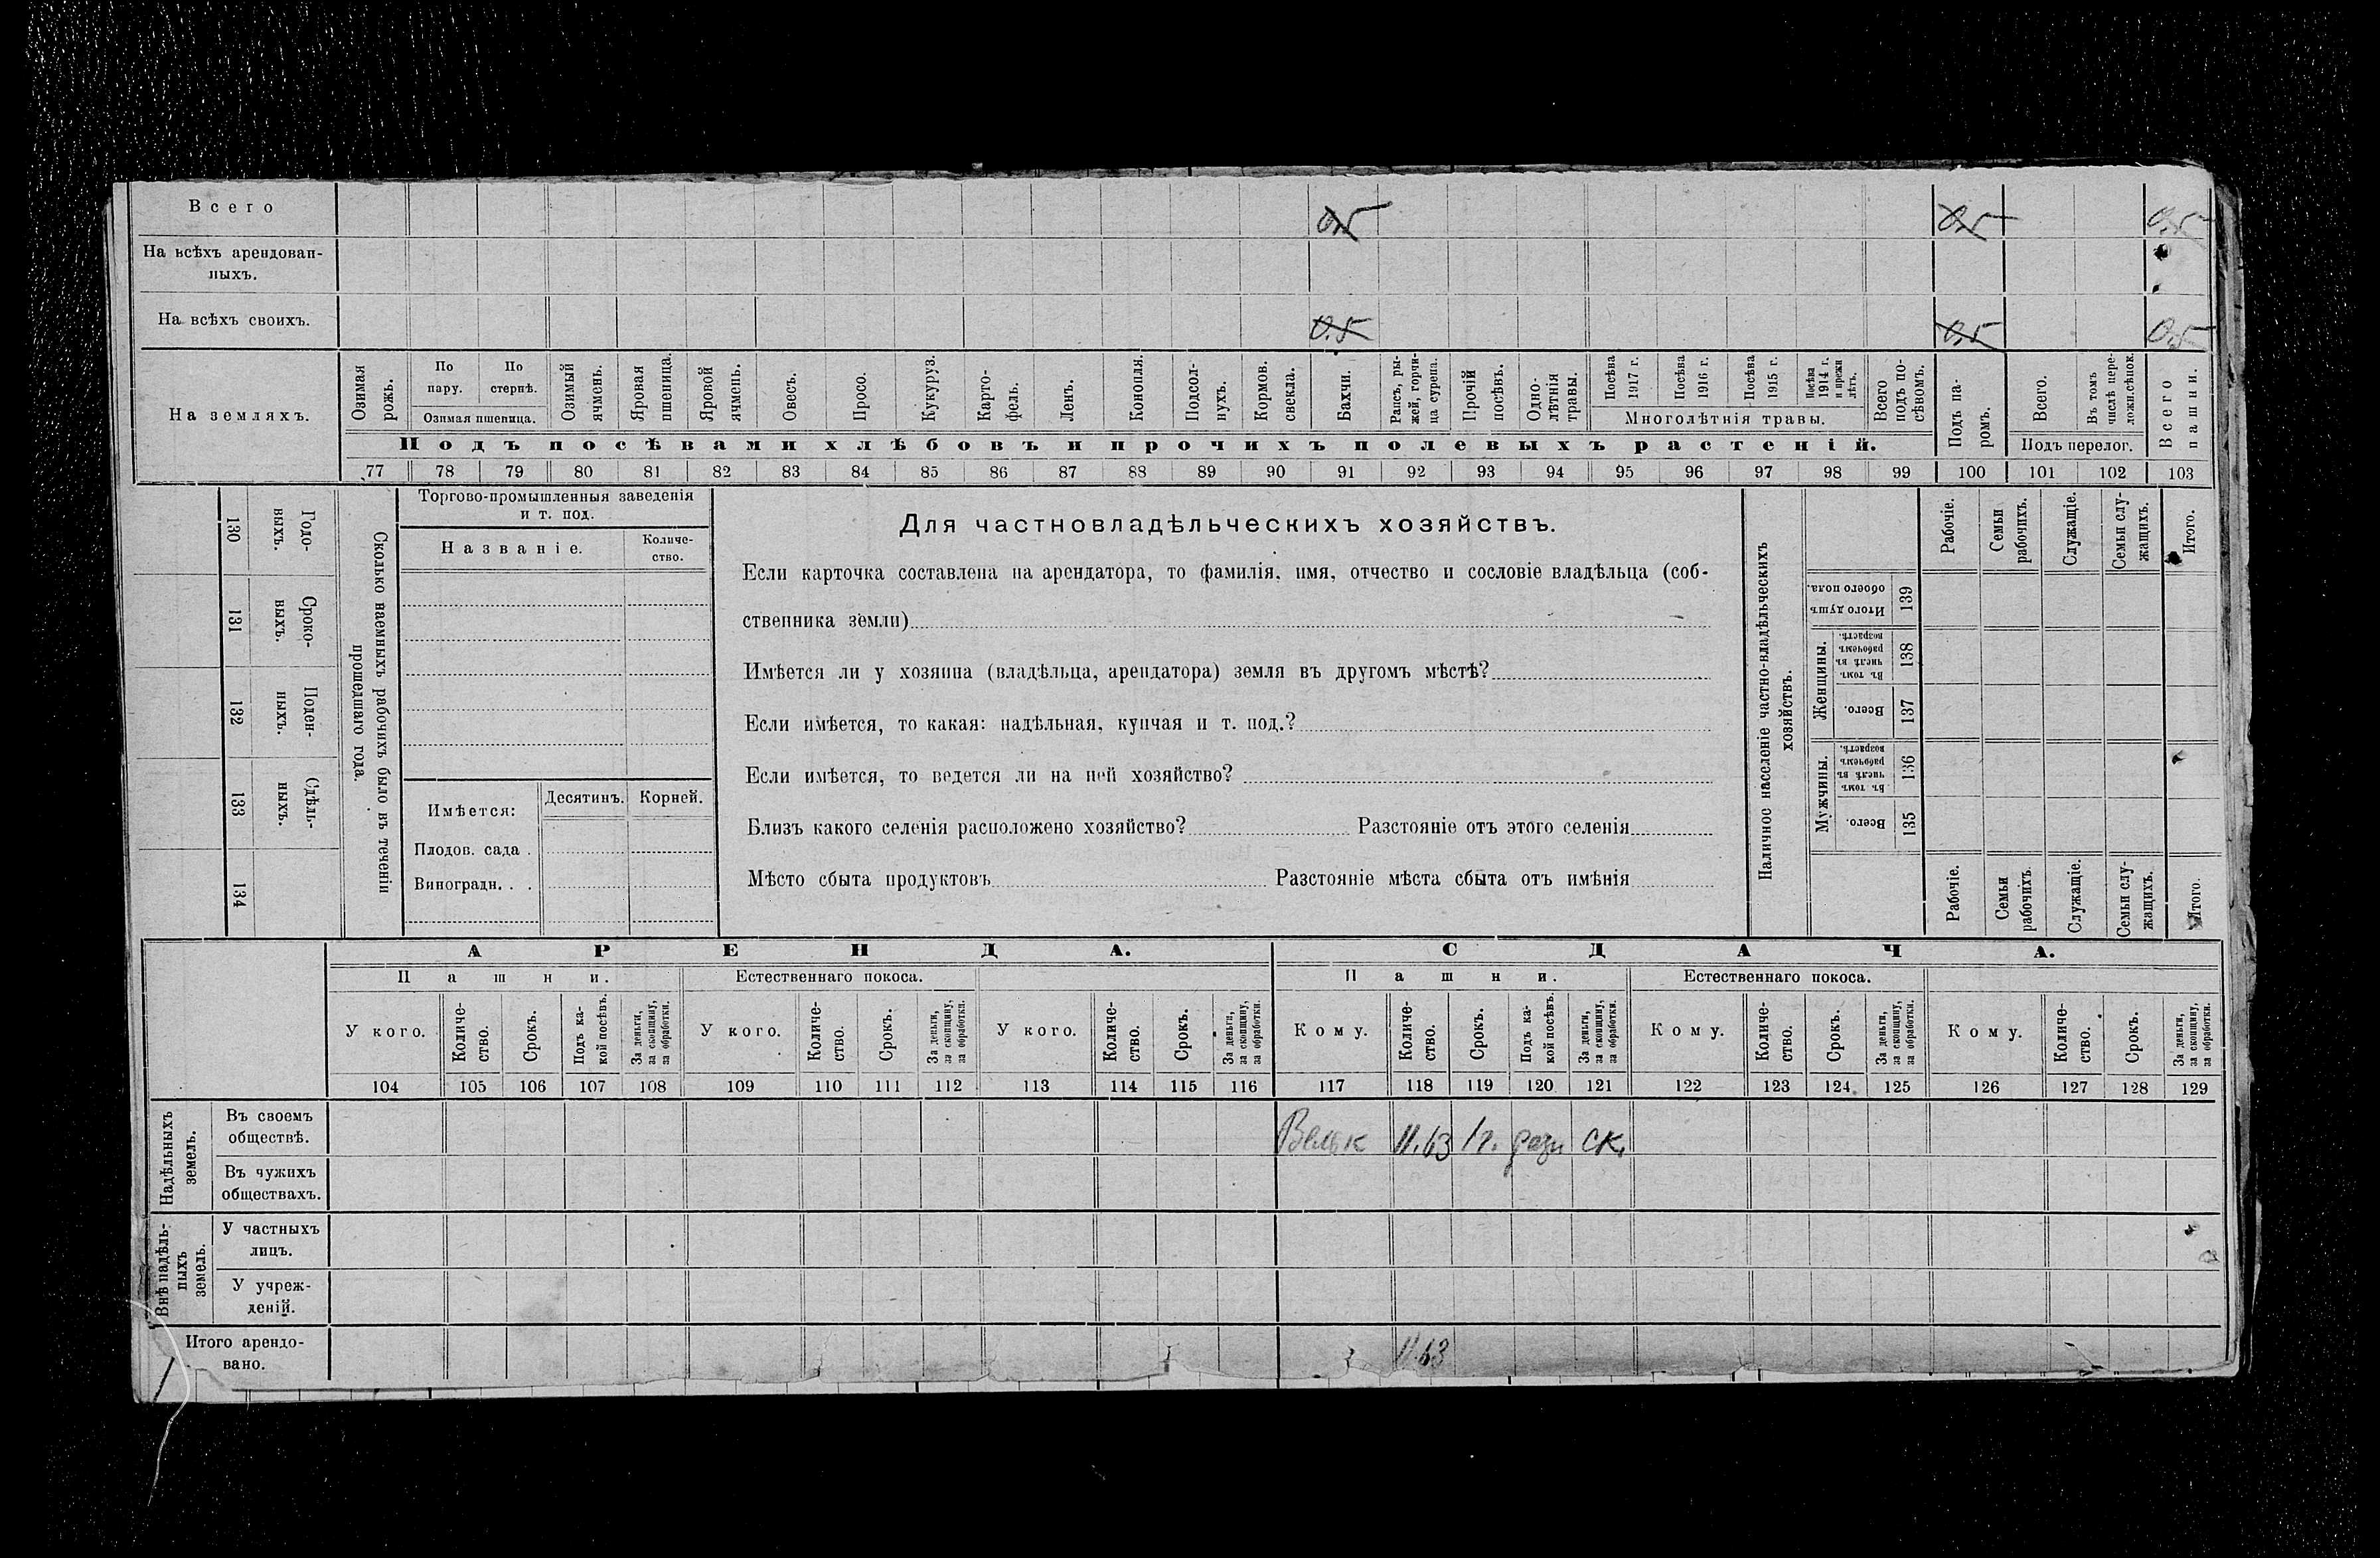 Всего 0.5 0.5 0.5
На всѣхъ арендован-
ныхъ.
На всѣхъ своихъ. 0.5 0.5 0.5
На земляхъ.
Озимая рожь.
По пару.
По стернѣ.
Озимая пшеница.
Озимый ячмень.
Яровая пшеница.
Яровой ячмень.
Овесъ.
Просо.
Кукуруз.
Карто-
фель.
Ленъ.
Конопля.
Подсол-
нухъ.
Кормов. свекла.
Бахчи.
Рапсъ, ры-
жей, горчи-
ца сурепа.
Прочій посѣвъ.
Одно-
лѣтнія травы.
Посѣва 1917 г.
Посѣва 1916 г.
Посѣва 1915 г.
Посѣва 1914 г. и прежн лѣтъ.
Многолѣтнія травы.
Всего подъ по-
сѣвомъ.
Подъ па-
ромъ.
Всего.
Въ томъ числѣ пере-
ложн.сѣнок.
Подъ перелог.
Всего пашни.
Подъ посѣвами хлѣбовъ и прочихъ полевыхъ растеній.
77 78 79 80 81 82 83 84 85 86 87 88 89 90 91 92 93 94 95 96 97 98 99 100 101 102 103
Годо-
выхъ.
130
Сроко-
выхъ.
131
Поден-
ныхъ.
132
Сдѣль-
ныхъ.
133
134
Сколько наемныхъ рабочихъ было въ теченіи
прошедшаго года.
Торгово-промышленныя заведенія
и т. под.
Названіе.
Количе-
ство.
Имѣется: Десятинъ. Корней.
Плодов. сада .
Виноградн. . .
Для частновладѣльческихъ хозяйствъ.
Если карточка составлена на арендатора, то фамилія, имя, отчество и сословіе владѣльца (соб-
ственника земли)
Имѣется ли у хозяина (владѣльца, арендатора) земля въ другомъ мѣстѣ?
Если имѣется, то какая: надѣльная, купчая и т. под.?
Если имѣется, то ведется ли на ней хозяйство?
Близъ какого селенія расположено хозяйство? Разстояніе отъ этого селенія
Мѣсто сбыта продуктовъ Разстояніе мѣста сбыта отъ имѣнія
Наличное населеніе частно-владѣльческихъ
хозяйствъ.
Рабочіе.
Семьи рабочихъ.
Служащіе.
Семьи слу-
жащихъ.
Итого.
Итого душъ обоего пола.
139
Женщины.
Въ томъ числѣ въ рабочемъ возрастѣ.
138
Всего.
137
Мужчины.
Въ томъ числѣ въ рабочемъ возрастѣ.
136
Всего.
135
Рабочіе.
Семьи рабочихъ.
Служащіе.
Семьи слу-
жащихъ.
Итого.
АРЕНДА. СДАЧА.
Пашни. Естественнаго покоса. Пашни. Естественнаго покоса.
У кого.
Количе-
ство.
Срокъ.
Подъ ка-
кой посѣвъ.
За деньги, за скопщину, за обработки.
У кого.
Количе-
ство.
Срокъ.
За деньги, за скопщину, за обработки.
У кого.
Количе-
ство.
Срокъ.
За деньги, за скопщину, за обработки.
Кому.
Количе-
ство.
Срокъ.
Подъ ка-
кой посѣвъ.
За деньги, за скопщину, за обработки.
Кому.
Количе-
ство.
Срокъ.
За деньги, за скопщину, за обработки.
Кому.
Количе-
ство.
Срокъ.
За деньги, за скопщину, за обработки.
104 105 106 107 108 109 110 111 112 113 114 115 116 117 118 119 120 121 122 123 124 125 126 127 128 129
Надѣльныхъ
земель.
Въ своемъ
обществѣ.
11.63 1г. ск.
Въ чужихъ
обществахъ.
Внѣ надѣль-
ныхъ
земель.
У частныхъ
лицъ.
У учреж-
деній.
Итого арендо-
вано.
11.63